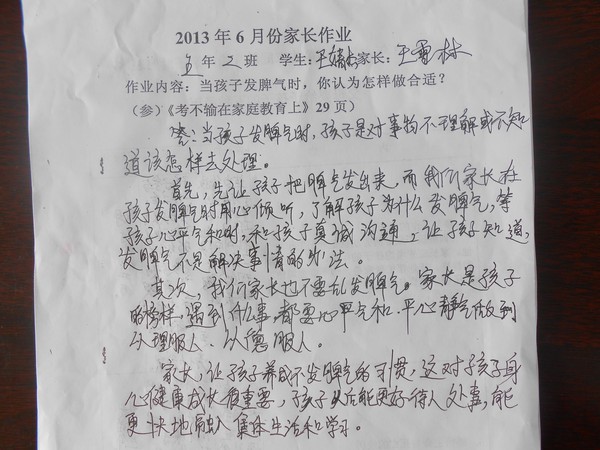 2013年6月份家长作业
五年2班 学生:王 家长:王雪林
作业内容:当孩子发脾气时,你认为怎样做合适?
(参)《考不输在家庭教育上》29页)
答:当孩子发脾气时,孩子是对事物不理解或不知
道该怎样去处理。
首先,先让孩子把脾气发出来,而我们家长在
孩子发脾气时用心倾听,了解孩子为什么发脾气,等
孩子心平气和时,和孩子真诚沟通,让孩子知道,
发脾气不是解决事情的办法。
其次,我们家长也不要乱发脾气。家长是孩子
的榜样,遇到什么事,都要心平气和,平心静气做到
以理服人、以德服人。
家长,让孩子养成不发脾气的习惯,这对孩子身
心健康成长很重要,孩子以后能更好待人处事,能
更快地融入集体生活和学习。